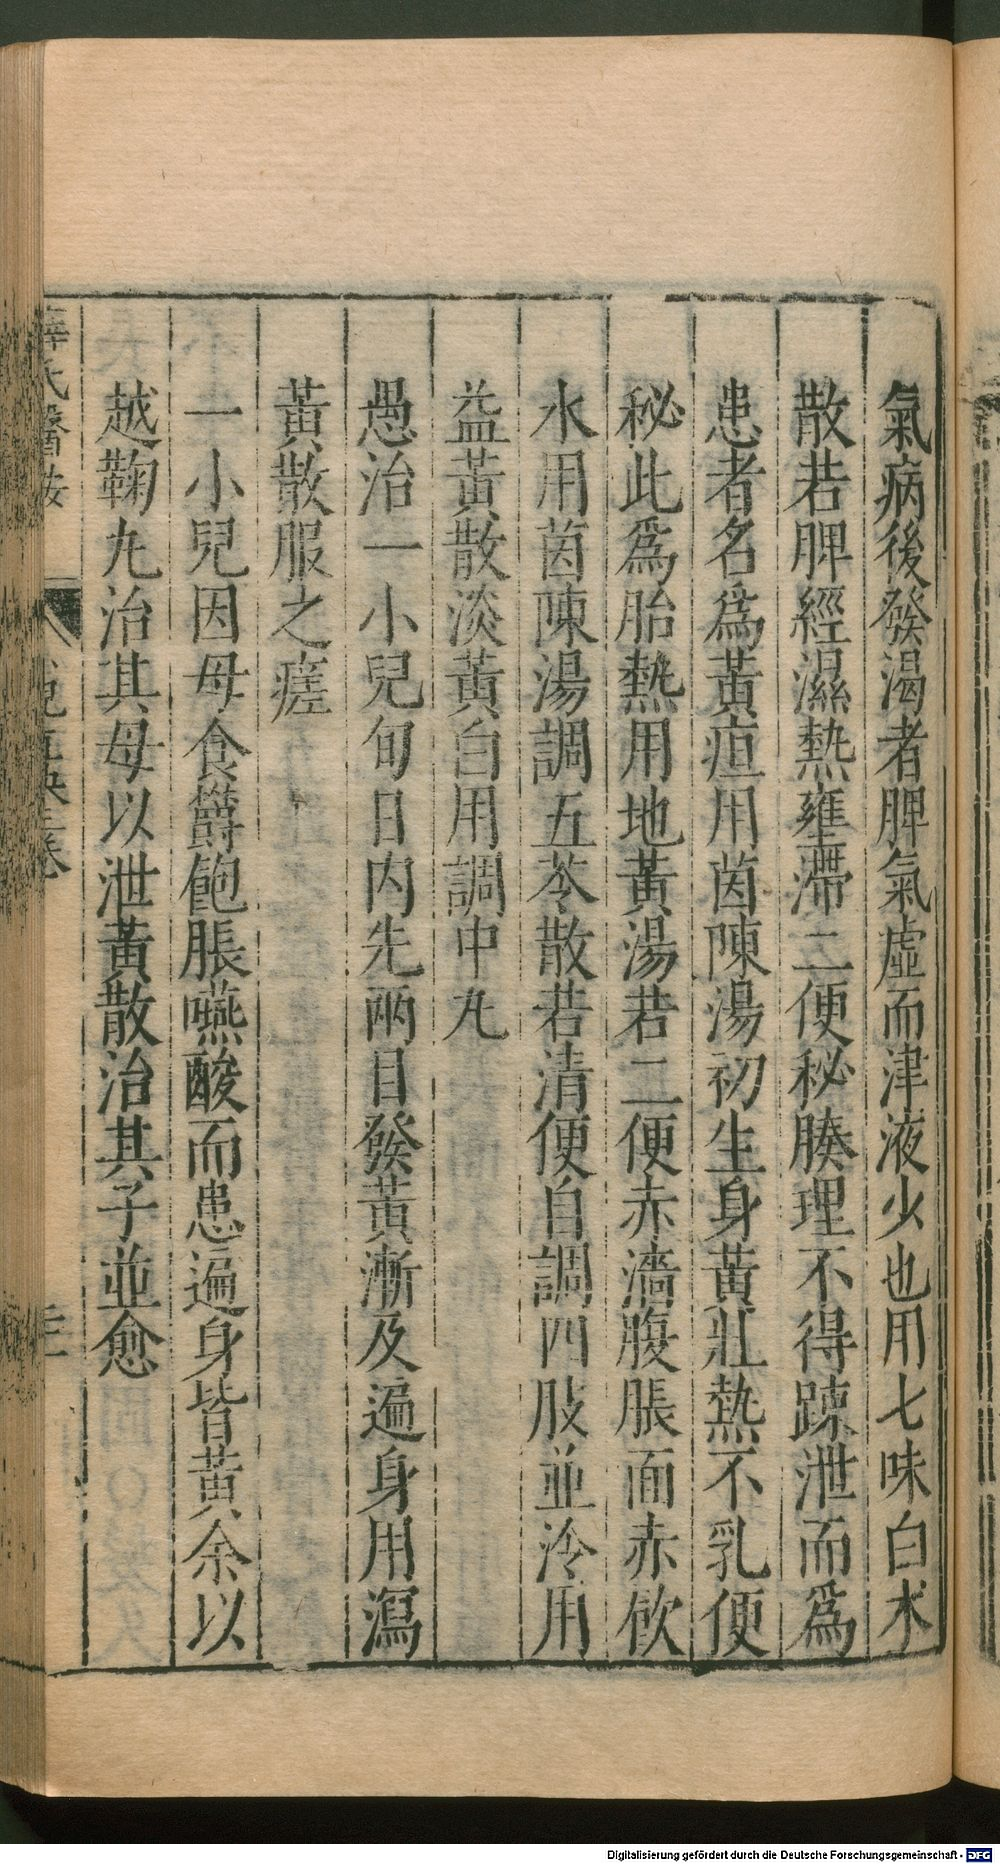 氣病後發渴者脾氣虛而津液少也用七味白朮
散若脾經濕熱壅滯二便秘腠理不得踈泄而為
患者名為黃疸用茵陳湯初生身黃壯熱不乳便
秘此為胎熱用地黃湯若二便赤濇腹脹面赤飲
水用茵陳湯調五苓散若清便自調四肢並冷用
益黃散淡黃白用調中丸
愚治一小兒旬日內先兩目發黃漸及遍身用瀉
黃散服之瘥
一小兒因母食欝飽脹嚥酸而患遍身皆黃余以
越鞠丸治其母以泄黃散治其子並愈
薛氏醫按
Digitalisierung gefördert durch die Deutsche Forschungsgemeinschaft - DFG